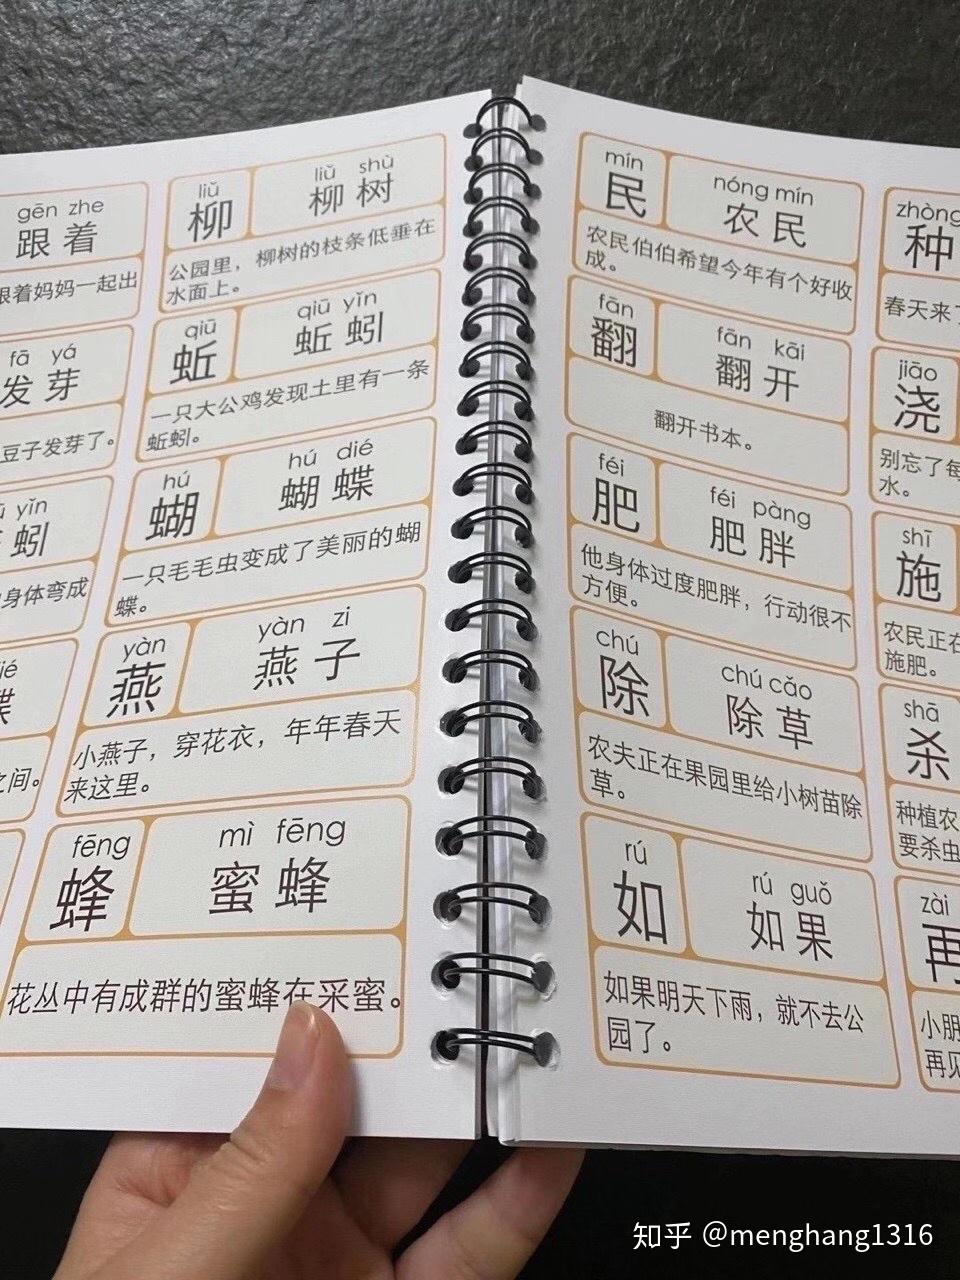 gēn zhe
跟着
跟着妈妈一起出
fā yá
发芽
豆子发芽了。
yǐn
蚓
身体弯成
蝶
之间。
liǔ
柳
liǔ shù
柳树
公园里，柳树的枝条低垂在
水面上。
qiū
蚯
qiū yǐn
蚯蚓
一只大公鸡发现土里有一条
蚯蚓。
hú
蝴
hú dié
蝴蝶
一只毛毛虫变成了美丽的蝴
蝶。
yàn
燕
yàn zi
燕子
小燕子，穿花衣，年年春天
来这里。
fēng
蜂
mì fēng
蜜蜂
花丛中有成群的蜜蜂在采蜜。
mín
民
nóng mín
农民
农民伯伯希望今年有个好收
成。
fān
翻
fān kāi
翻开
翻开书本。
féi
肥
féi pàng
肥胖
他身体过度肥胖，行动很不
方便。
chú
除
chú cǎo
除草
农夫正在果园里给小树苗除
草。
rú
如
rú guǒ
如果
如果明天下雨，就不去公
园了。
zhòng
种
春天来了
jiāo
浇
别忘了每
水。
shī
施
农民正在
施肥。
shā
杀
种植农
要杀虫
zài
再
小朋
再见
知乎 @menghang1316